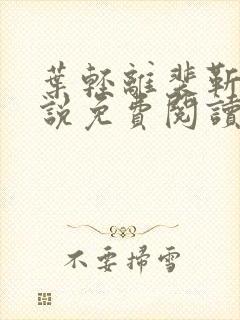 葉輕離裴靳
說免費閱讀
不要掃雪